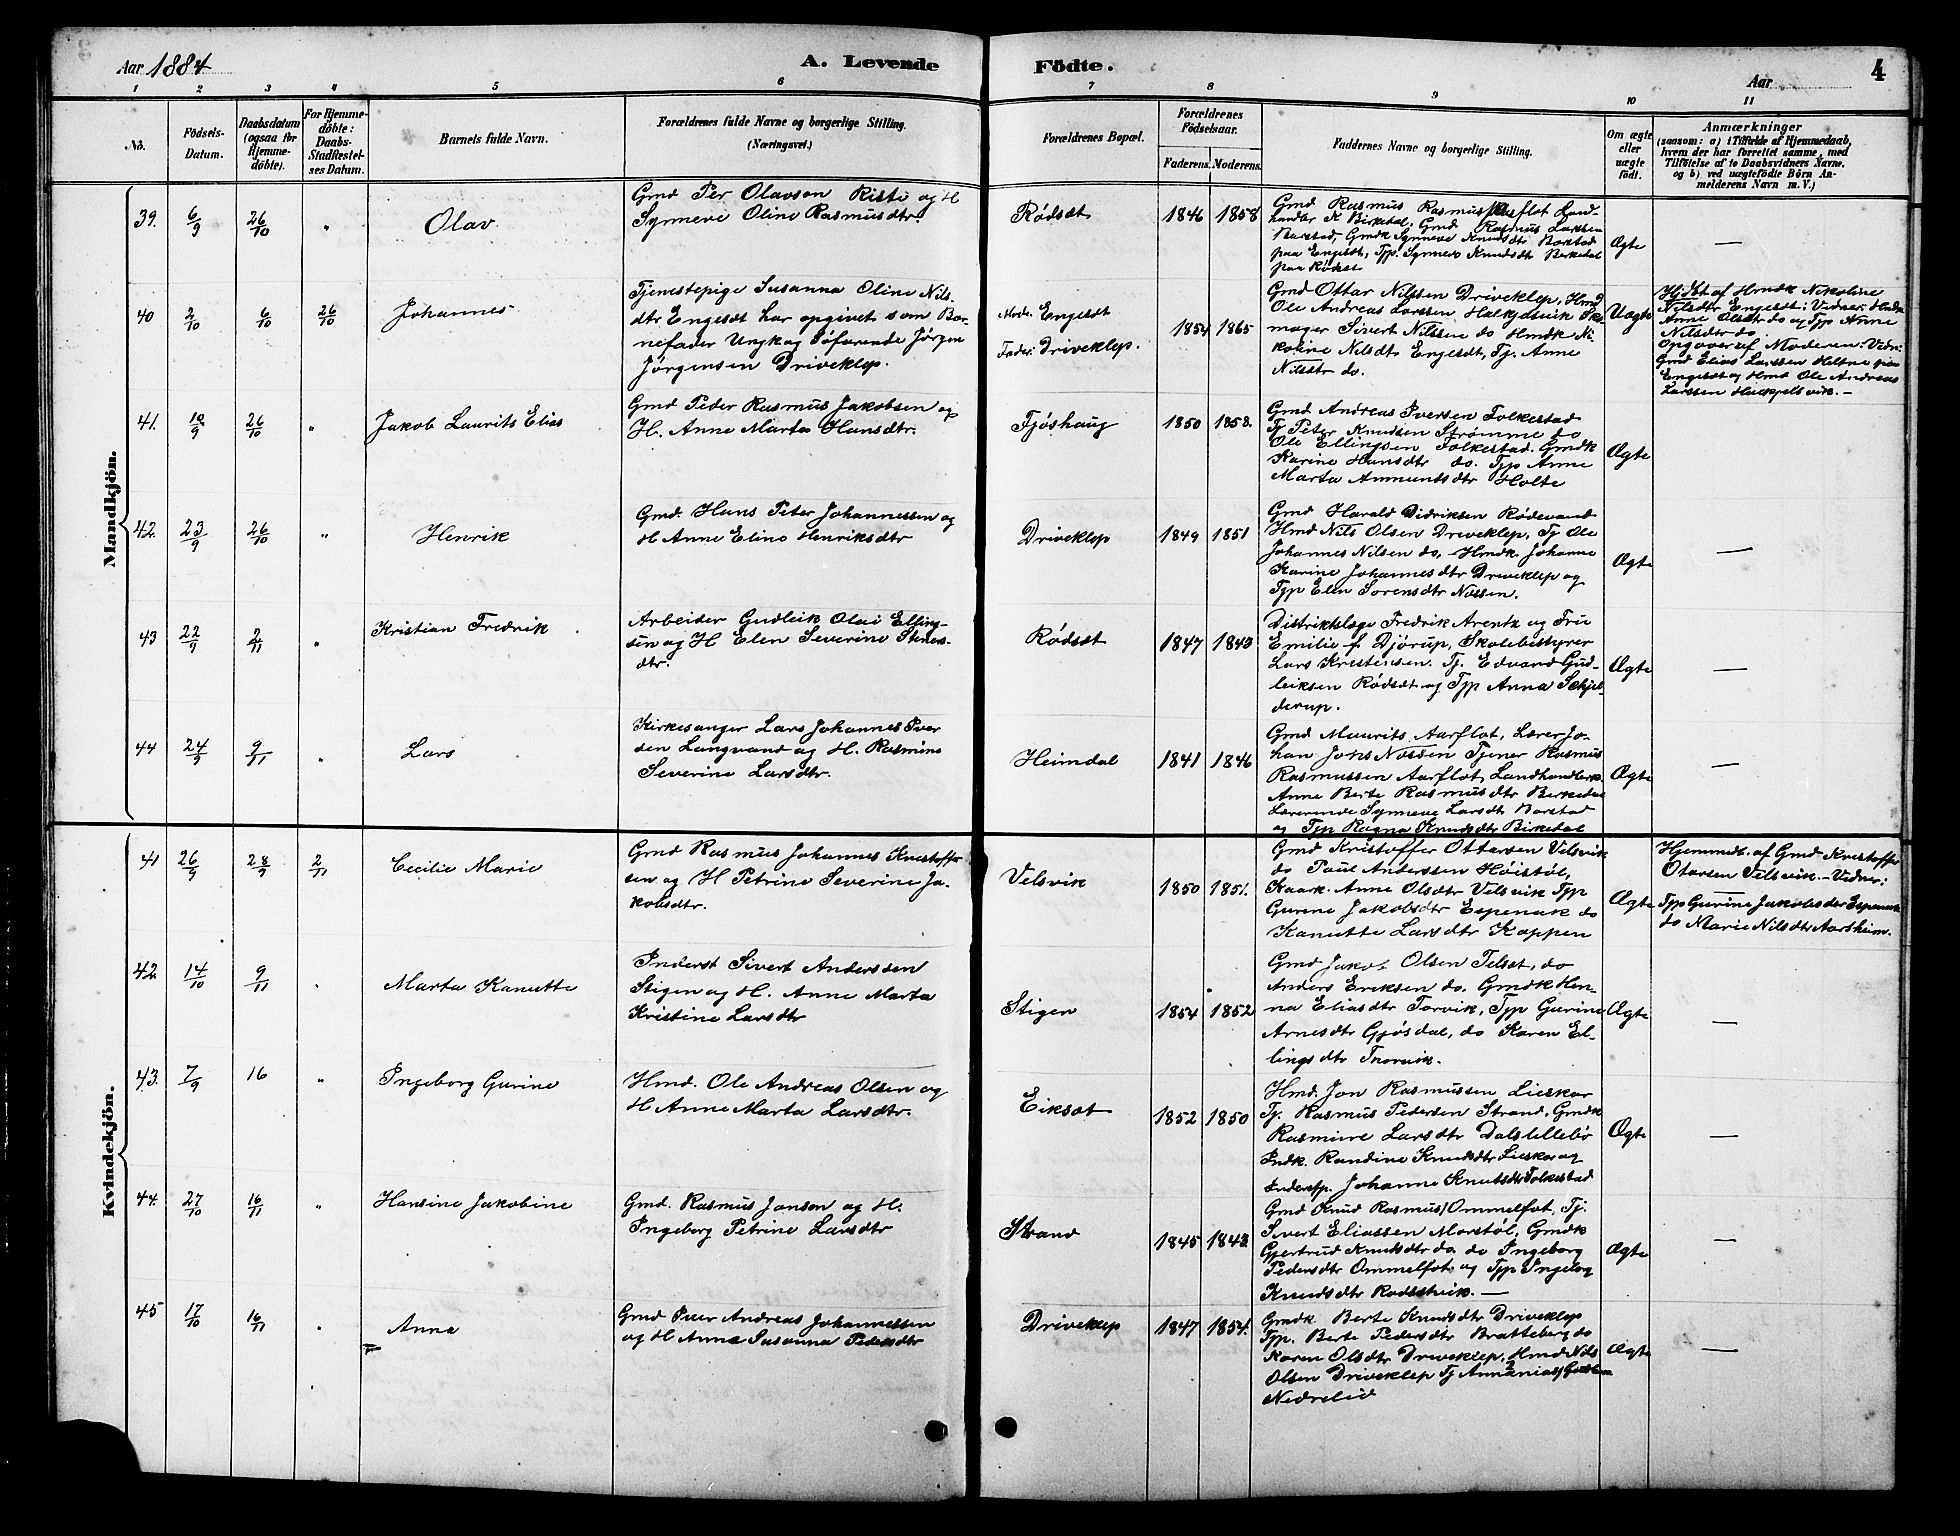 Aar 1884
A. Levende
Födte.
Aar
4
1 2 3 4 5 6 7 8 9 10 11
No.
Födsels-
Datum.
Daabsdatum
(ogsaa for
Hjemme-
døbte).
For Hjemme-
døbte:
Daabs-
Stadfæstel-
ses Datum.
Barnets fulde Navn.
Forældrenes fulde Navne og borgerlige Stilling.
(Næringsvei.)
Forældrenes Bopæl.
Forældrenes
Födselsaar.
Faderens. Moderens.
Faddernes Navne og borgerlige Stilling.
Om ægte
eller
uægte
født.
Anmærkninger
(saasom: a) i Tilfælde af Hjemmedaab,
hvem der har forrettet samme, med
Tilføielse af to Daabsvidners Navne,
og b) ved uægtefødte Börn An-
melderens Navn m. V.)
Mandkjön.
39. 6/9 26/10 "
Olav
Gmd Per Olavson Riste og H
Synneve Oline Rasmusdtr.
Rödsæt
1846 1858
Gmd Rasmus Rasmus Aarflot Land-
handler K Birkedal. Gmd Rasmus Larssen
Barstad, Gmdk Synneve Knudsdtr Barstad
paa Engesæt, Typ. Synneve Knudsdtr Birkedal
paa Rödsæt
Ægte
—
40 2/10 6/10 26/10
Johannes
Tjenestepige Susanna Oline Nils-
dtr Engesæt har opgivet som Bar-
nefader Ungkag Søfarende Jörgen
Jörgensen Driveklep.
Mod. Engesæt
Fader: Driveklep.
1854 1865
Gmd Ottar Nilssen Driveklep, Hmd
Ole Andreas Larssen Halkjelsvik Sko-
mager Sivert Nilssen do Hmdk Ni-
koline Nilsdtr Engesdt, Tj. Anne
Nilsdtr do.
Uægte
Hj.dbt af Hmdk Nikoline
Nilsdtr Engesdt: Vidner: Hmdk
Anne Olsdtr do og Typ Anne
Nilsdtr do
Opgaver af Moderen: Vidn:
Gmd Elias Larssen Heltne paa
Engesæt og Hmd Ole Andreas
Larssen Halkjelsvik. —
41. 10/9 26/10 "
Jakob Laurits Elias
Gmd Peder Rasmus Jakobsen og
H. Anne Marta Hansdtr.
Fjöshaug
1850 1858.
Gmd Andreas Iversen Folkestad
Tj Peter Knudsen Strømme do
Ole Ellingsen Folkestad. Gmdk
Karine Hansdtr do. Typ Anne
Marta Ammundsdtr Holte
Ægte
42. 23/9 26/10 "
Henrik
Gmd. Hans Peter Johannessen og
H Anne Elino Henriksdtr
Driveklep
1849 1851
Gmd Harald Didriksen Rödevand
Hmd Nils Olsen Driveklep, Tj Ole
Johannes Nilsen do, Hmdk. Johanne
Karine Johannesdtr Driveklep og
Typ Elen Sorensdtr Nossen.
Ægte
—
43 22/9 2/11 "
Kristian Fredrik
Arbeider Gudleik Olai Elling-
sen og H Elen Severine Stenes-
dtr.
Rödsæt
1847 1843
Distriktslæge Fredrik Arentz og Frü
Emilie f. Djörup, Skolebestyrer
Lars Kristensen. Tj. Edvard Gud-
leiksen Rödsdt og Typ Anna Schjel-
derup.
Ægte
—
44 24/9 9/11 "
Lars
Kirkesanger Lars Johannes Iver
sen Langvand og H. Rasmine
Severine Larsdtr.
Heimdal
1841 1846
Gmd Maurits Aarflot, Lærer Jo-
han Johs Nossen Tjener Rasmus
Rasmussen Aarflot, Landhandlerk.
Anne Berte Rasmusdtr Birkedal
Lærerinde Synneve Larsdtr Barstad
og Typ Ragna Knudsdtr Birkedal
Ægte
—
Kvindekjön.
41 26/9 28/9 2/11
Cecilie Marie
Gmd Rasmus Johannes Kristoffer
sen og H Petrine Severine Ja-
kobsdtr.
Velsvik
1850 1851.
Gmd Kristoffer Ottarsen Velsvik
do Paul Anderssen Höistöl,
Kaark. Anne Olsdtr Velsvik Typ
Gurine Jakobsdtr Espenak do
Kanutte Larsdtr Koppen
Ægte
Hjemmdt. af Gmd Kristoffe
Otarsen Velsvik. — Vidner:
Typ Gurine Jakobsdtr Espenak
do Marie Nilsdtr Aarsheim.
42 14/10 9/11 "
Marta Kanutte
Inderst Sivert Anderssen
Stigen og H. Anne Marta
Kristine Larsdtr
Stigen
1854 1852
Gmd Jakob Olsen Telset, do
Anders Eriksen do. Gmdk Hen-
na Eliasdtr Torvik, Typ Gurine
Arnesdtr Gjösdal, do Karen El-
lingsdtr Thorvik.
Ægte
—
43. 7/9 16 "
Ingeborg Gurine
Hmd. Ole Andreas Olsen og
H Anne Marta Larsdtr.
Eiksæt
1852 1850
Hmd. Jon Rasmussen Lieskar
Tj. Rasmus Pedersen Strand, Gmdk
Rasmine Larsdtr Dalslillebö
Indk. Randine Knudsdtr Lieskar og
Indersp. Johanne Knutsdtr Folkestad
Ægte
—
44. 27/10 16/11 "
Hansine Jakobine
Gmd. Rasmus Jonsen og H.
Ingeborg Petrine Larsdtr
Strand
1845 1843
Gmd Knud Rasmus Ommelfot, Tj.
Sivert Eliassen Morstöl, Gmdk
Gjertrud Knudsdtr do. do Ingeborg
Pedersdtr Ommelfot og Typ Ingeborg
Knudsdtr Rodesthvik. —
Ægte
—
45 17/10 16/11 "
Anna
Gmd Iver Andreas Johannessen
og H Anna Susanna Pedersdtr
Driveklep
1847 1854.
Gmdk. Berte Knudsdtr Driveklep
Typ. Berte Pedersdtr Bratteberg do
Karen Olsdtr Driveklep, Hmd Nils
Olsen Driveklep Tj Annanias
Nedrelid
Ægte
—